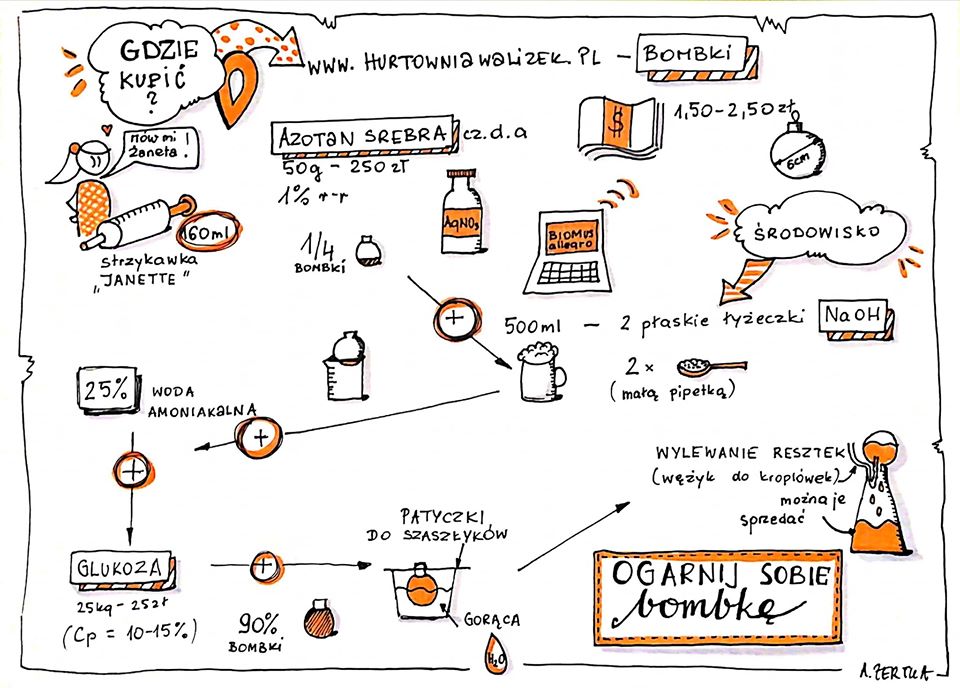 GDZIE
KUPIĆ
?
WWW. HURTOWNIAWALIZEK.PL – BOMBKI
1,50-2,50zł
6cm
mów mi
Żaneta!
60ml
strzykawka
„JANETTE"
AZOTAN SREBRA cz.d.a
50g - 250 zł
1% r-r
AgNO₃
1/4
BOMBKI
BIOMUS
allegro
ŚRODOWISKO
500ml – 2 płaskie łyżeczki NaOH
2 x
(małą pipetką)
25% WODA
AMONIAKALNA
GLUKOZA
25kg - 25zł
(Cp = 10-15%)
90%
BOMBKI
PATYCZKI
DO SZASZŁYKÓW
GORĄCA
H₂O
WYLEWANIE RESZTEK
(wężyk do kroplówek)
można je
sprzedać
OGARNIJ SOBIE
bombkę
A.ZERTKA